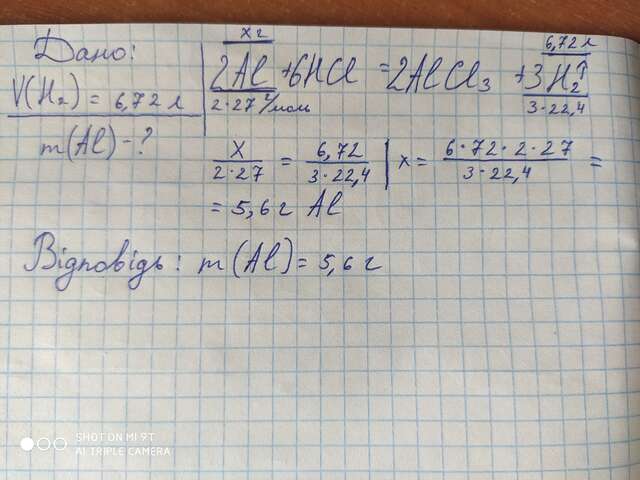 Дано:
V(H₂) = 6,72 л
m(Al) - ?
x г
6,72 л
2Al + 6HCl = 2AlCl₃ + 3H₂↑
2·27 г/моль
3·22,4
x / 2·27 = 6,72 / 3·22,4 | x = 6·72·2·27 / 3·22,4 =
= 5,6 г Al
Відповідь: m(Al) = 5,6 г
SHOT ON MI 9T
AI TRIPLE CAMERA